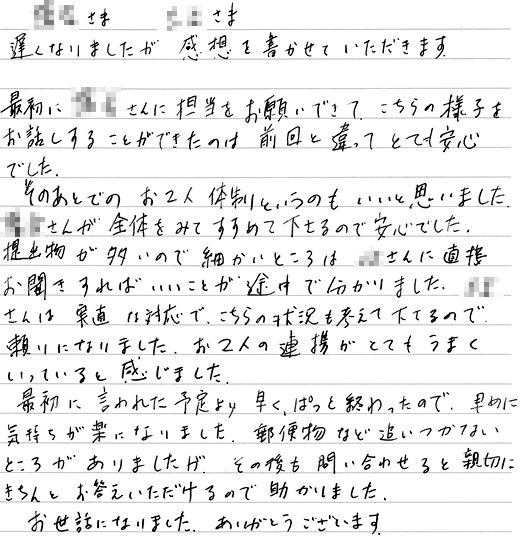 さま さま
遅くなりましたが 感想を書かせていただきます
最初に さんに担当をお願いできて、こちらの様子を
お話しすることができたのは 前回と違って とても安心
でした。
そのあとでの お2人体制というのも いいと思いました。
さんが 全体をみて すすめて下さるので安心でした。
提出物が多いので細かいところは さんに直接
お聞きすればいいことが途中で分かりました。
さんは 実直な対応で、こちらの状況も考えて下さるので
頼りになりました。お2人の連携がとてもうまく
いっていると感じました。
最初に言われた予定より早く、ぱっと終わったので、早めに
気持ちが楽になりました。郵便物など追いつかない
ところがありましたが、その後も問い合わせると親切に
きちんとお答えいただけるので助かりました。
お世話になりました。ありがとうございます